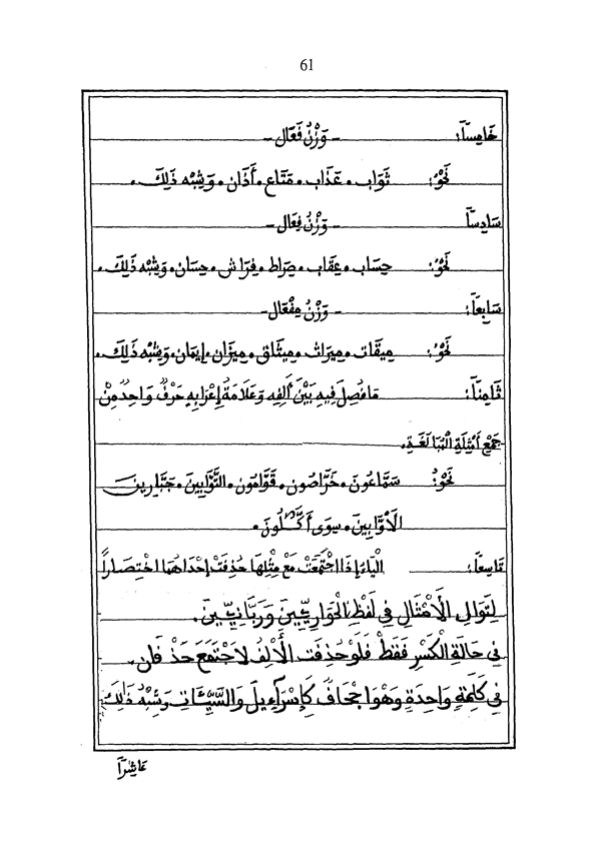 61
خَامِساً: - وَزْنُ فَعَال -
نَحْوُ: ثَوَاب. عَذَاب. مَتَاع. أَذَان. وَشِبْه ذَلِكَ.
سَادِساً - وَزْنُ فِعَال -
نَحْوُ: حِسَاب. عِقَاب. صِرَاط. فِرَاش. حِسَان. وَشِبْه ذَلِكَ.
سَابِعاً: - وَزْنُ مِفْعَال -
نَحْوُ: مِيقَات. مِيرَاث. مِيثَاق. مِيزَان. إِيمَان. وَشِبْه ذَلِكَ.
ثَامِناً: مَا فُصِلَ فِيهِ بَيْنَ أَلِفِهِ وَعَلَامَةُ إِعْرَابِهِ حَرْفٌ وَاحِدٌ مِنْ
جَمْعِ أَمْثِلَةِ الْمُبَالَغَةِ.
نَحْوُ: سَمَّاعُونَ. خَرَّاصُون. قَوَّامُون. التَّوَّابِينَ. جَبَّارِينَ
الْأَوَّابِينَ. سِوَى أَكَّٰلُونَ.
تَاسِعاً: الْيَاءُ إِذَا اجْتَمَعَتْ مَعَ مِثْلِهَا حُذِفَتْ إِحْدَاهُمَا اخْتِصَاراً
لِتَوَالِي الْأَمْثَالِ فِي لَفْظِ الْحَوَارِيِّينَ وَرَبَّانِيِّينَ.
فِي حَالَةِ الْكَسْرِ فَقَطْ فَلَوْ حُذِفَتِ الْأَلِفُ لَاجْتَمَعَ حَذْفَانِ.
فِي كَلِمَةٍ وَاحِدَةٍ وَهُوَ إِجْحَافٌ كَإِسْرَآءِيلَ وَالسَّيِّئَاتِ وَشِبْهُ ذَلِكَ
عَاشِراً